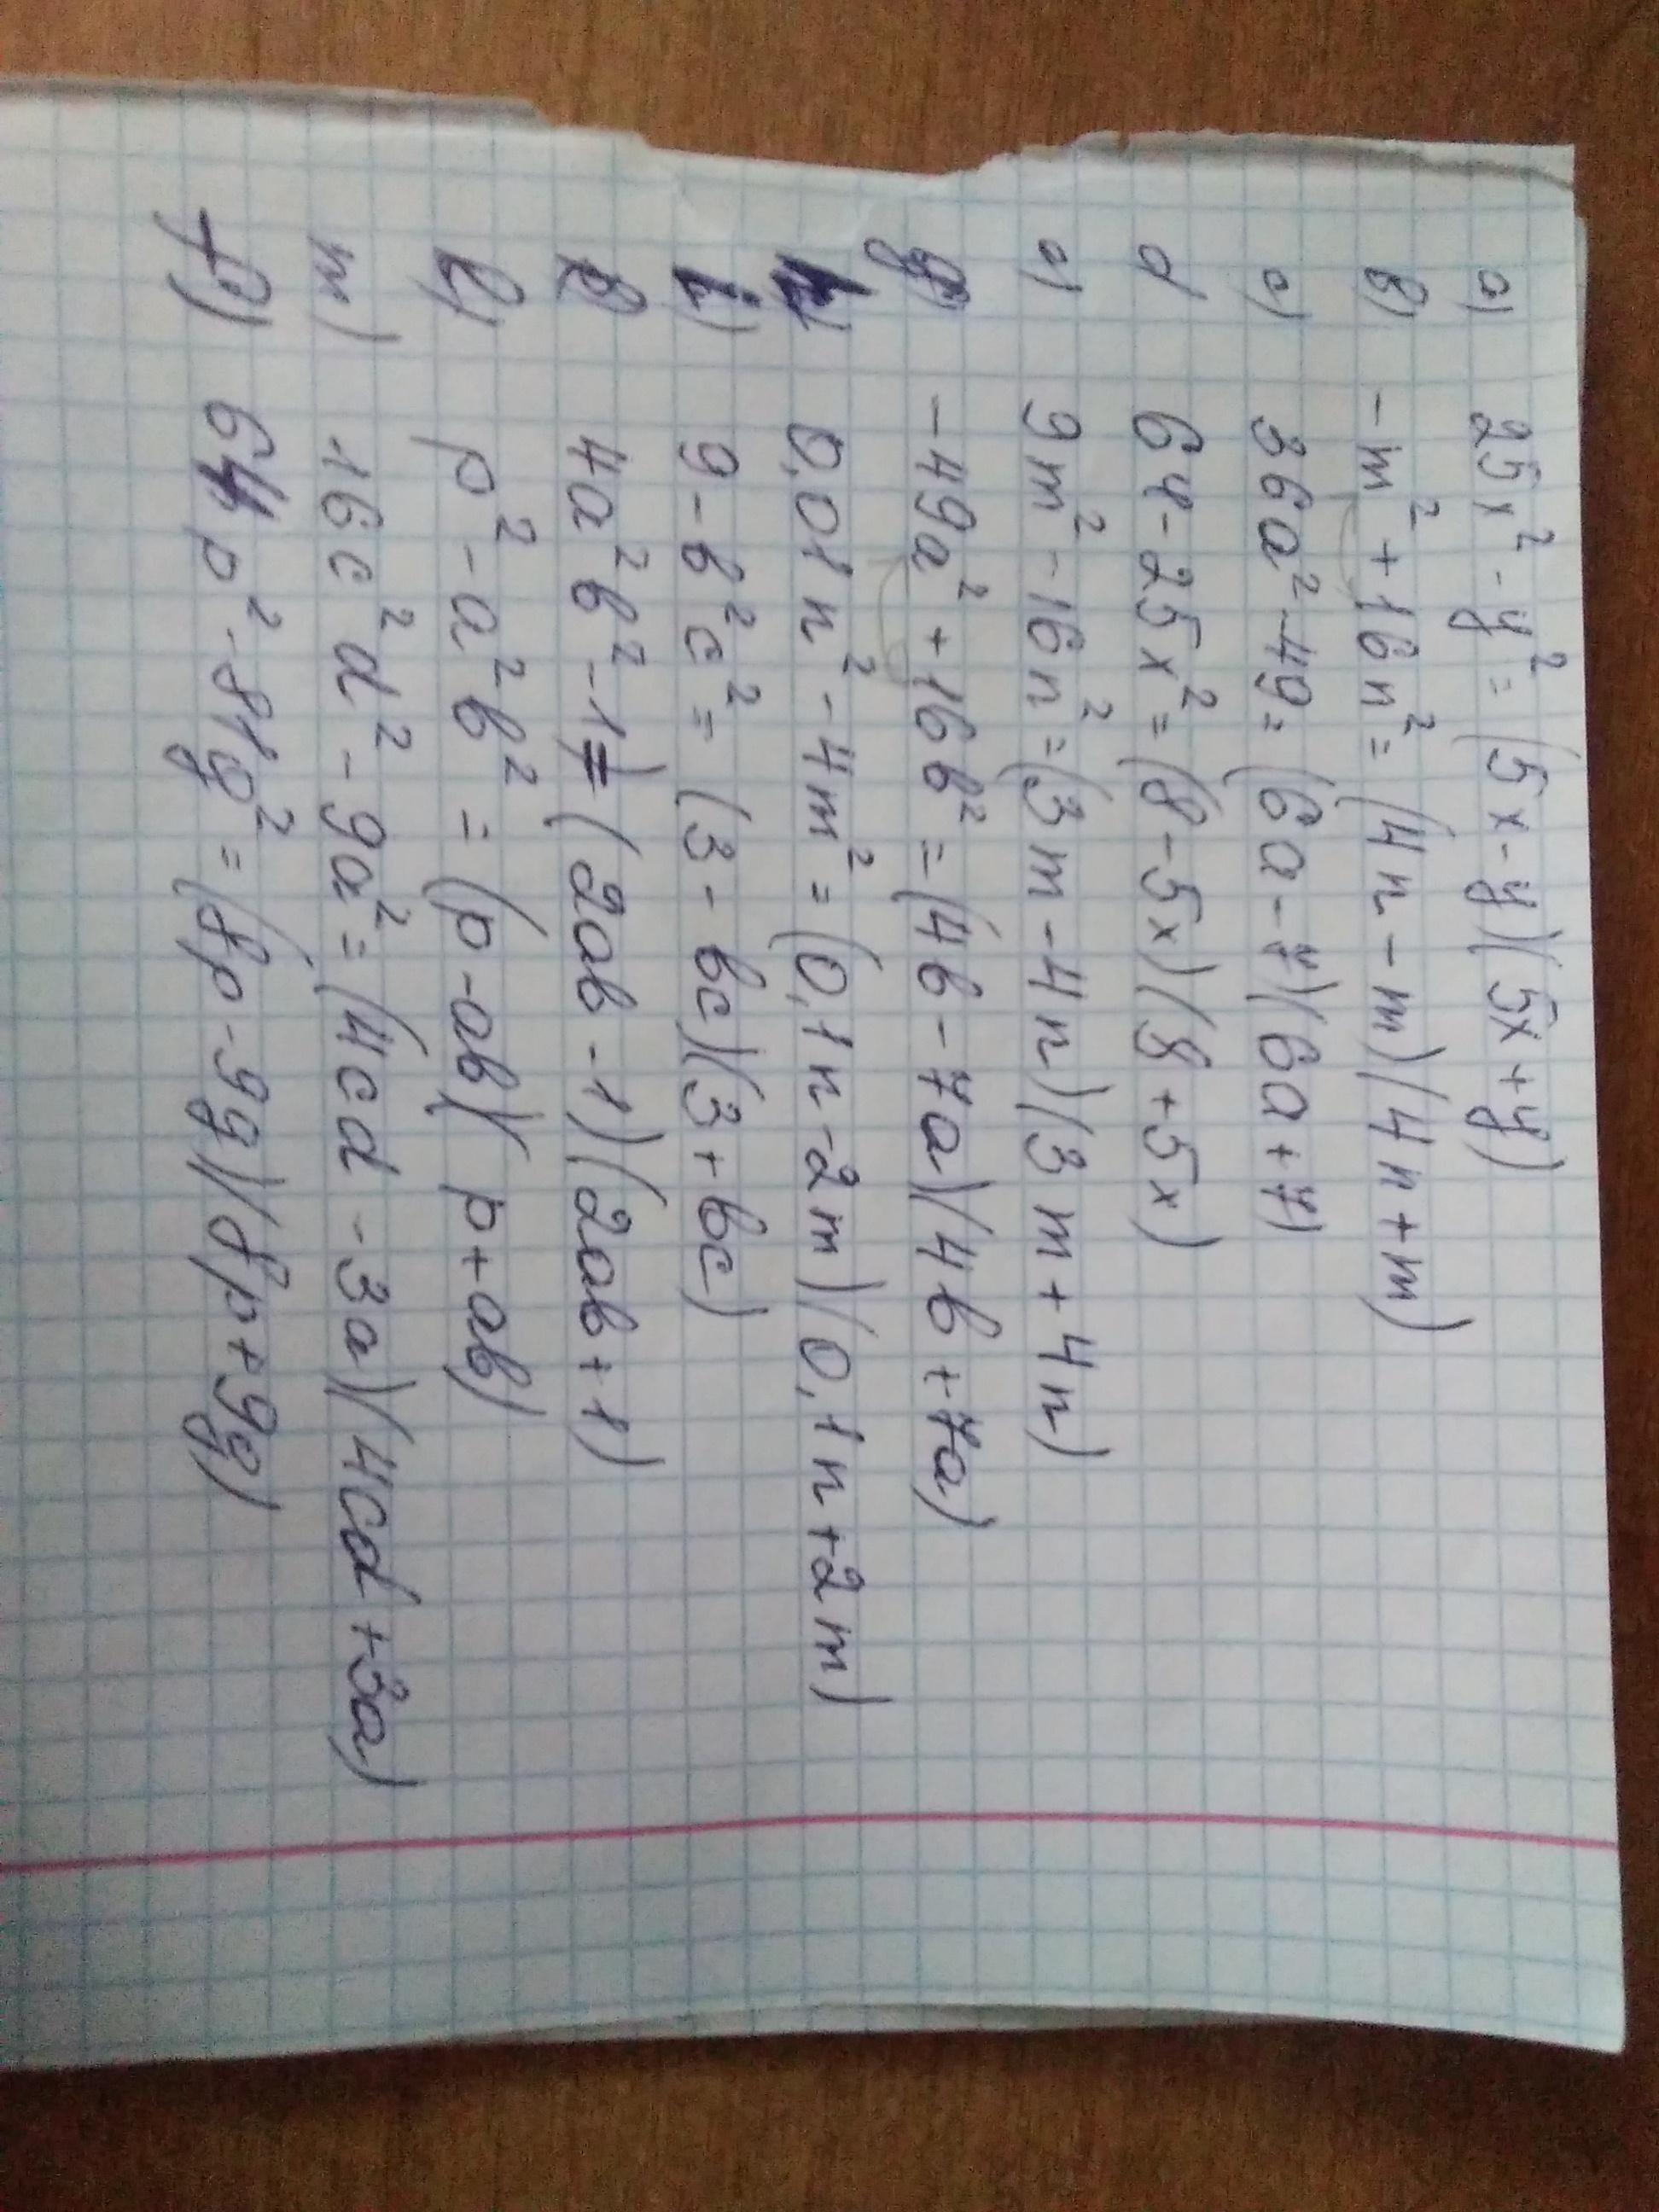 a) 25x² - y² = (5x - y)(5x + y)
b) - m² + 16n² = (4n - m)(4n + m)
c) 36a² - 49 = (6a - 7)(6a + 7)
d) 64 - 25x² = (8 - 5x)(8 + 5x)
e) 9m² - 16n² = (3m - 4n)(3m + 4n)
g) - 49a² + 16b² = (4b - 7a)(4b + 7a)
h) 0,01n² - 4m² = (0,1n - 2m)(0,1n + 2m)
i) 9 - b²c² = (3 - bc)(3 + bc)
k) 4a²b² - 1 = (2ab - 1)(2ab + 1)
l) p² - a²b² = (p - ab)(p + ab)
m) 16c²d² - 9a² = (4cd - 3a)(4cd + 3a)
f) 64p² - 81g² = (8p - 9g)(8p + 9g)